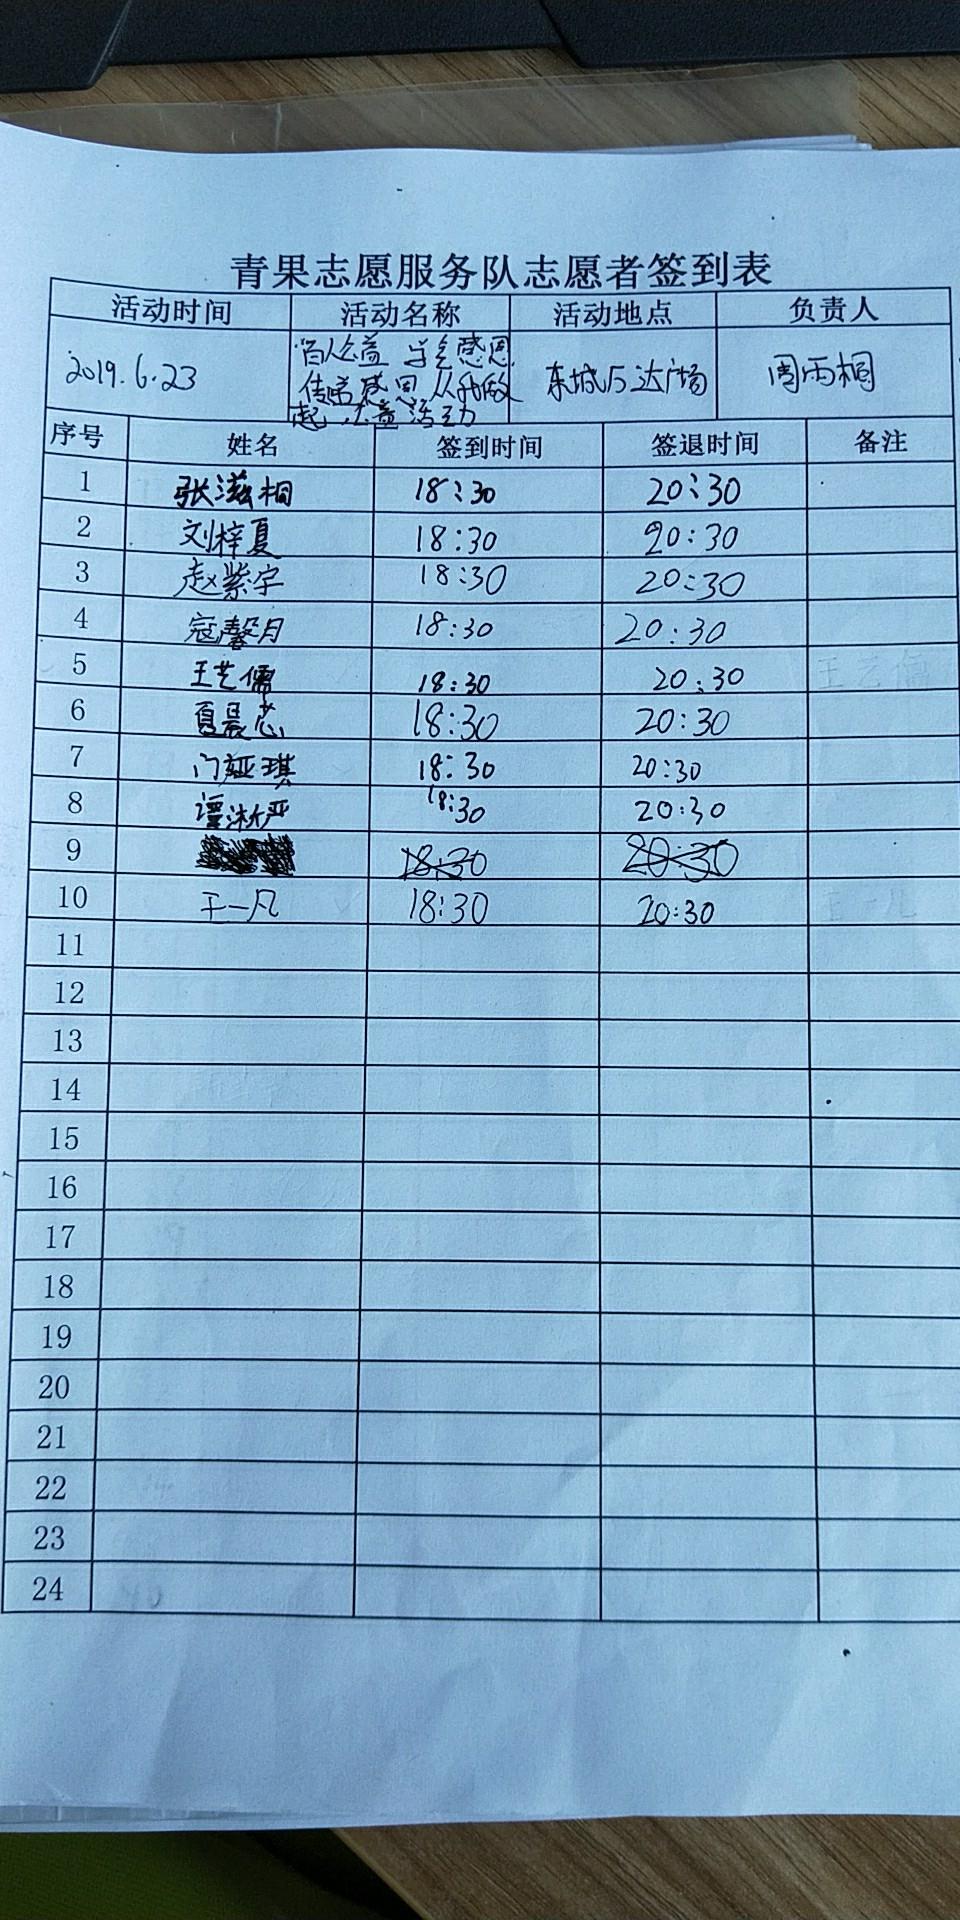 青果志愿服务队志愿者签到表
活动时间 活动名称 活动地点 负责人
2019.6.23 百人公益 学会感恩 传递感恩 从我做起 公益活动 东城万达广场 周雨桐
序号 姓名 签到时间 签退时间 备注
1 张滋桐 18:30 20:30
2 刘梓夏 18:30 20:30
3 赵紫宇 18:30 20:30
4 寇馨月 18:30 20:30
5 王艺儒 18:30 20:30 王艺儒
6 夏晨芯 18:30 20:30
7 门娅琪 18:30 20:30
8 谭淅严 18:30 20:30
9 18:30 20:30
10 王一凡 18:30 20:30 王一凡
11
12
13
14
15
16
17
18
19
20
21
22
23
24